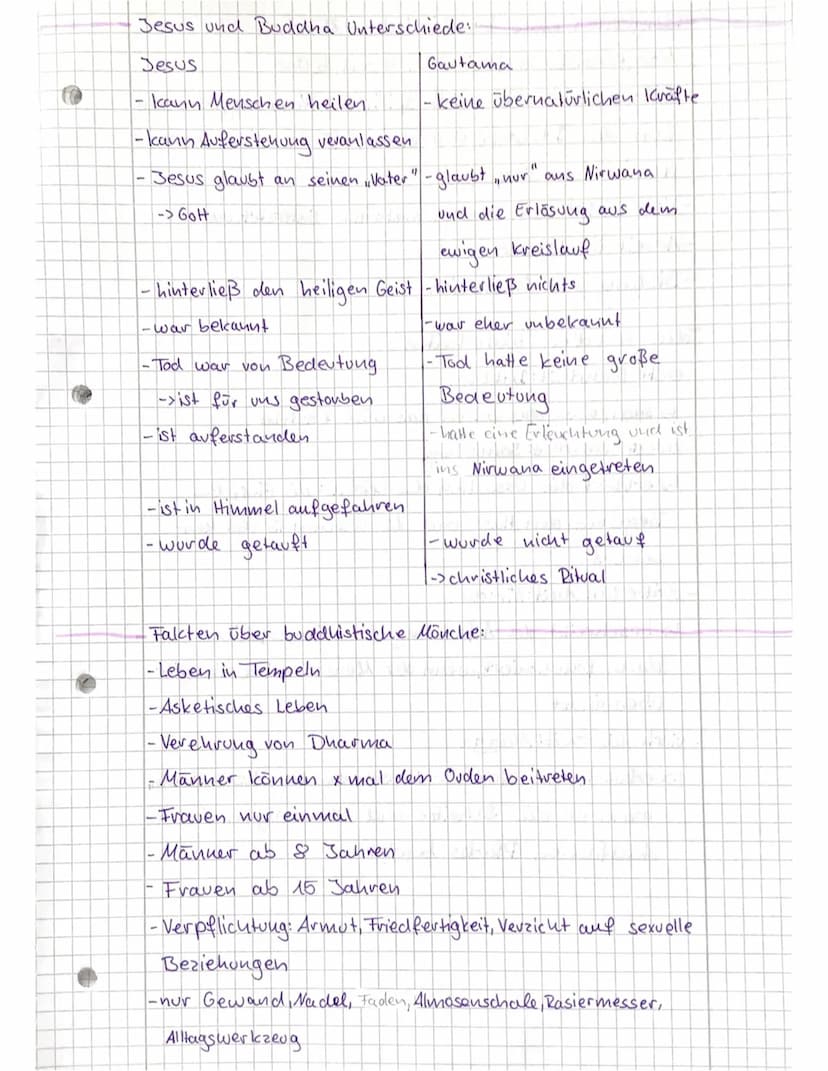 Jesus und Buddha Unterschiede:
Jesus Gautama
- kann Menschen heilen - keine übernatürlichen Kräfte
- kann Auferstehung veranlassen
- Jesus glaubt an seinen „Vater" - glaubt „nur" ans Nirwana
-> Gott und die Erlösung aus dem
ewigen Kreislauf
- hinterließ den heiligen Geist - hinterließ nichts
- war bekannt - war eher unbekannt
- Tod war von Bedeutung - Tod hatte keine große
-> ist für uns gestorben Bedeutung
- ist auferstanden - hatte eine Erleuchtung und ist
ins Nirwana eingetreten
- ist in Himmel aufgefahren
- wurde getauft - wurde nicht getauf
-> christliches Ritual
Fakten über buddhistische Mönche:
- Leben in Tempeln
- Asketisches Leben
- Verehrung von Dharma
- Männer können x mal dem Orden beitreten
- Frauen nur einmal
- Männer ab 8 Jahren
- Frauen ab 15 Jahren
- Verpflichtung: Armut, Friedfertigkeit, Verzicht auf sexuelle
Beziehungen
- nur Gewand, Nadel, Faden, Almosenschale, Rasiermesser,
Alltagswerkzeug